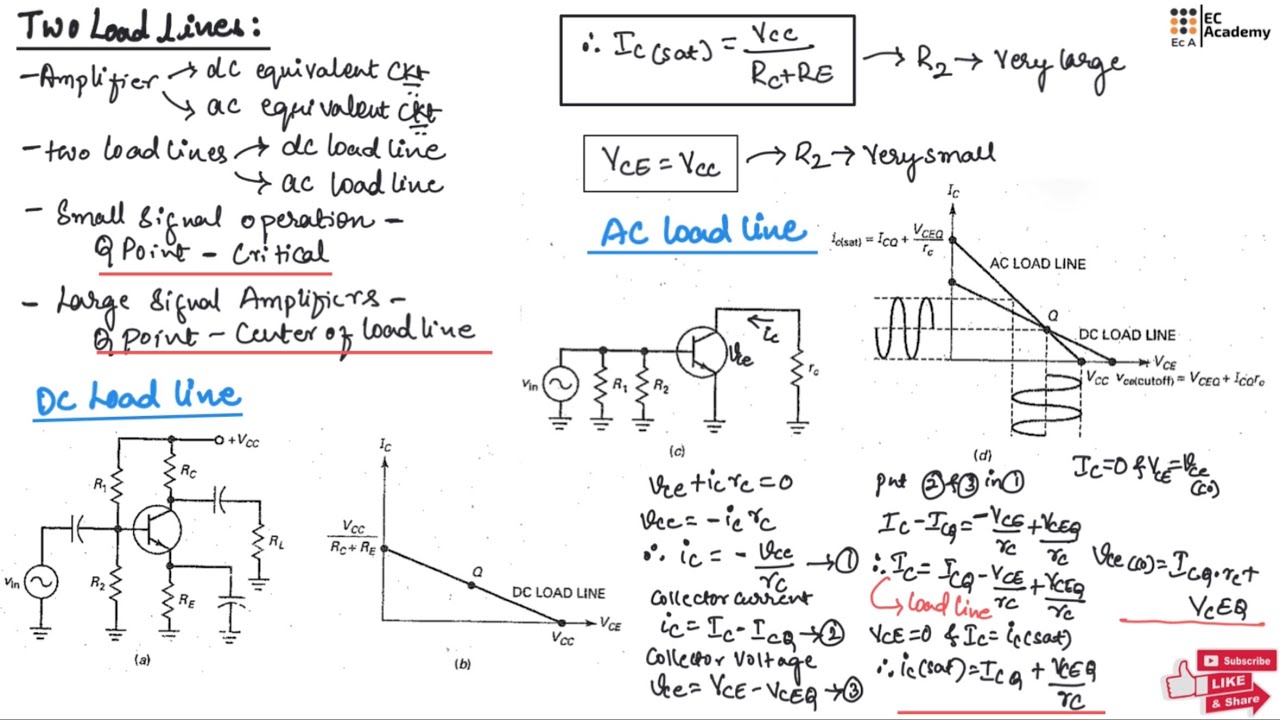 Two Load Lines:
- Amplifier → dc equivalent ckt
→ ac equivalent ckt
- two load lines → dc load line
→ ac load line
- Small signal operation -
Q Point - Critical
- Large Signal Amplifiers -
Q point - Center of load line
DC Load line
+VCC
RC
R1
RL
vin
R2
RE
(a)
IC
VCC
RC + RE
Q
DC LOAD LINE
VCE
VCC
(b)
∴ IC(sat) = VCC / RC+RE → R2 → Very large
VCE = VCC → R2 → Very small
EC Academy
Ec A
AC load line
ic
vce
vin
R1
R2
rc
(c)
IC
ic(sat) = ICQ + VCEQ / rc
AC LOAD LINE
Q
DC LOAD LINE
VCE
VCC vce(cutoff) = VCEQ + ICQrc
(d)
vce + ic rc = 0
vce = - ic rc
∴ ic = - vce / rc → ①
Collector current
ic = IC - ICQ → ②
Collector voltage
vce = VCE - VCEQ → ③
put ② & ③ in ①
IC - ICQ = -VCE / rc + VCEQ / rc
∴ IC = ICQ - VCE / rc + VCEQ / rc
→ load line
VCE = 0 & IC = ic(sat)
∴ ic(sat) = ICQ + VCEQ / rc
IC = 0 & VCE = vce (co)
vce(co) = ICQ . rc +
VCEQ
Subscribe
LIKE
& Share